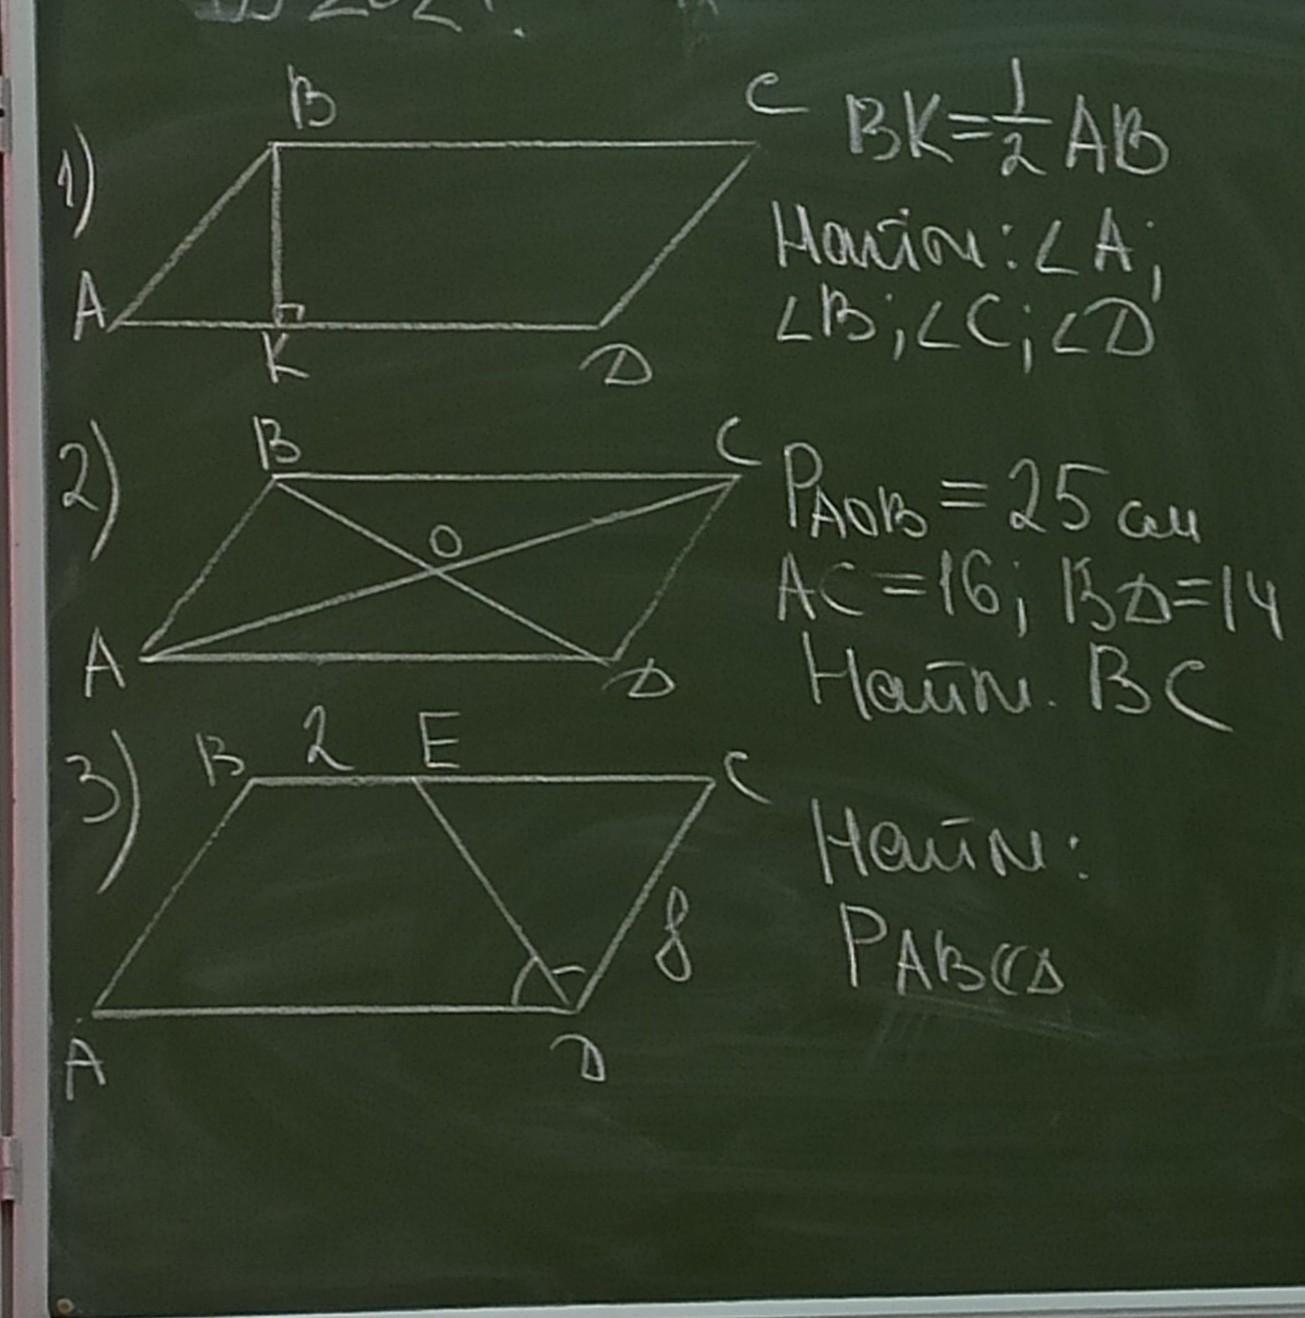 1)
B
C
A
K
D
BK=1/2 AB
Найти: ∠A;
∠B; ∠C; ∠D
2)
B
C
O
A
D
P AOB = 25 см
AC=16; BD=14
Найти. BC
3)
B 2 E
C
8
A
D
Найти:
P ABCD